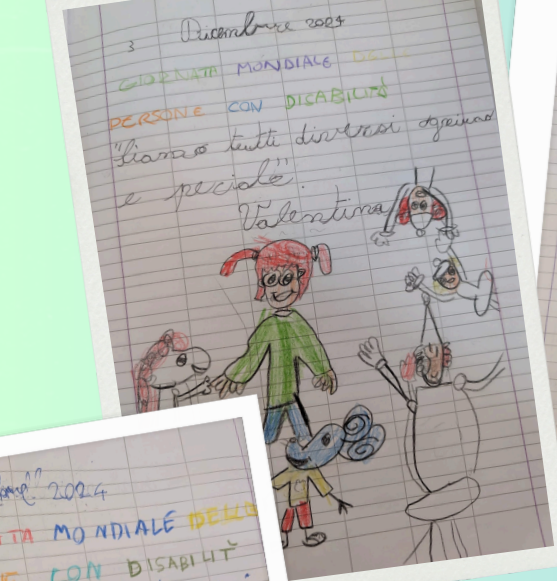 3 Dicembre 2024
GIORNATA MONDIALE DELLE
PERSONE CON DISABILITÀ
"Siamo tutti diversi ognuno
e peciale"
Valentina
2024
TA MONDIALE DELLE
E CON DISABILIT